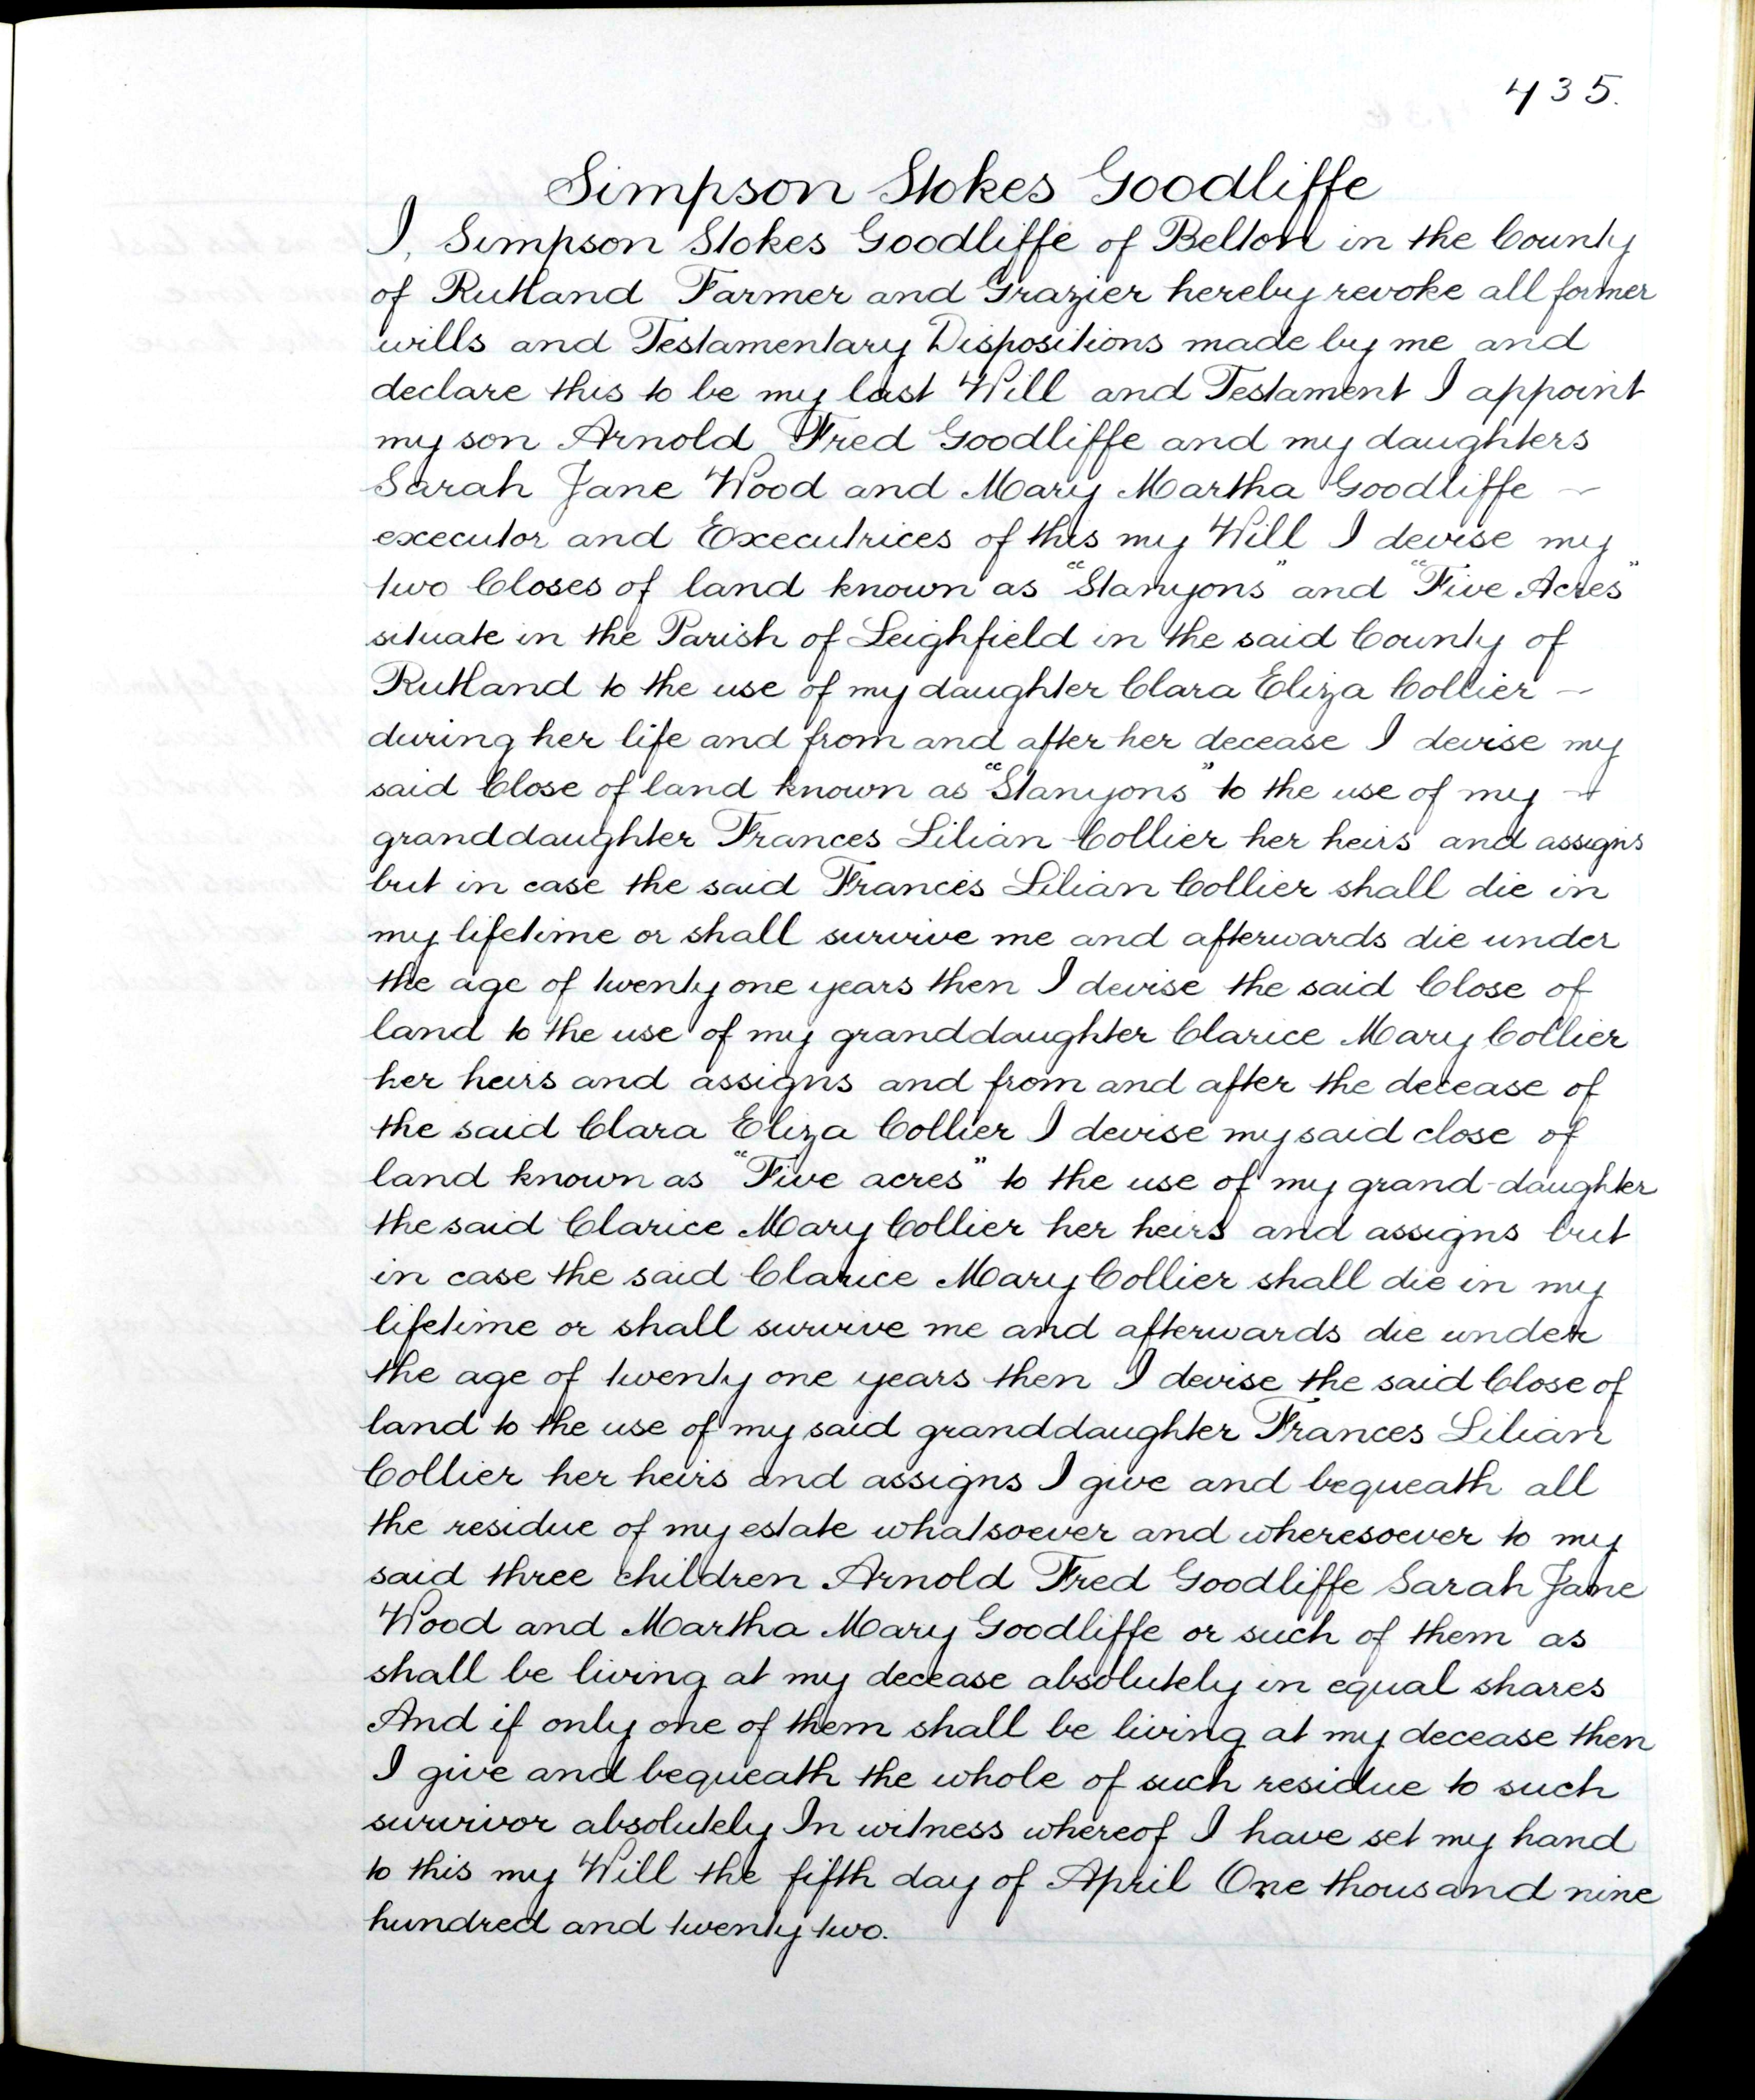 435.
Simpson Stokes Goodliffe
I, Simpson Stokes Goodliffe of Belton in the County
of Rutland Farmer and Grazier hereby revoke all former
wills and Testamentary Dispositions made by me and
declare this to be my last Will and Testament I appoint
my son Arnold Fred Goodliffe and my daughters
Sarah Jane Wood and Mary Martha Goodliffe —
executor and Executrices of this my Will I devise my
two Closes of land known as "Stanyons" and "Five Acres"
situate in the Parish of Leighfield in the said County of
Rutland to the use of my daughter Clara Eliza Collier —
during her life and from and after her decease I devise my
said Close of land known as "Stanyons" to the use of my —
granddaughter Frances Lilian Collier her heirs and assigns
but in case the said Frances Lilian Collier shall die in
my lifetime or shall survive me and afterwards die under
the age of twenty one years then I devise the said Close of
land to the use of my granddaughter Clarice Mary Collier
her heirs and assigns and from and after the decease of
the said Clara Eliza Collier I devise my said close of
land known as "Five acres" to the use of my grand-daughter
the said Clarice Mary Collier her heirs and assigns but
in case the said Clarice Mary Collier shall die in my
lifetime or shall survive me and afterwards die under
the age of twenty one years then I devise the said Close of
land to the use of my said granddaughter Frances Lilian
Collier her heirs and assigns I give and bequeath all
the residue of my estate whatsoever and wheresoever to my
said three children Arnold Fred Goodliffe Sarah Jane
Wood and Martha Mary Goodliffe or such of them as
shall be living at my decease absolutely in equal shares
And if only one of them shall be living at my decease then
I give and bequeath the whole of such residue to such
survivor absolutely In witness whereof I have set my hand
to this my Will the fifth day of April One thousand nine
hundred and twenty two.